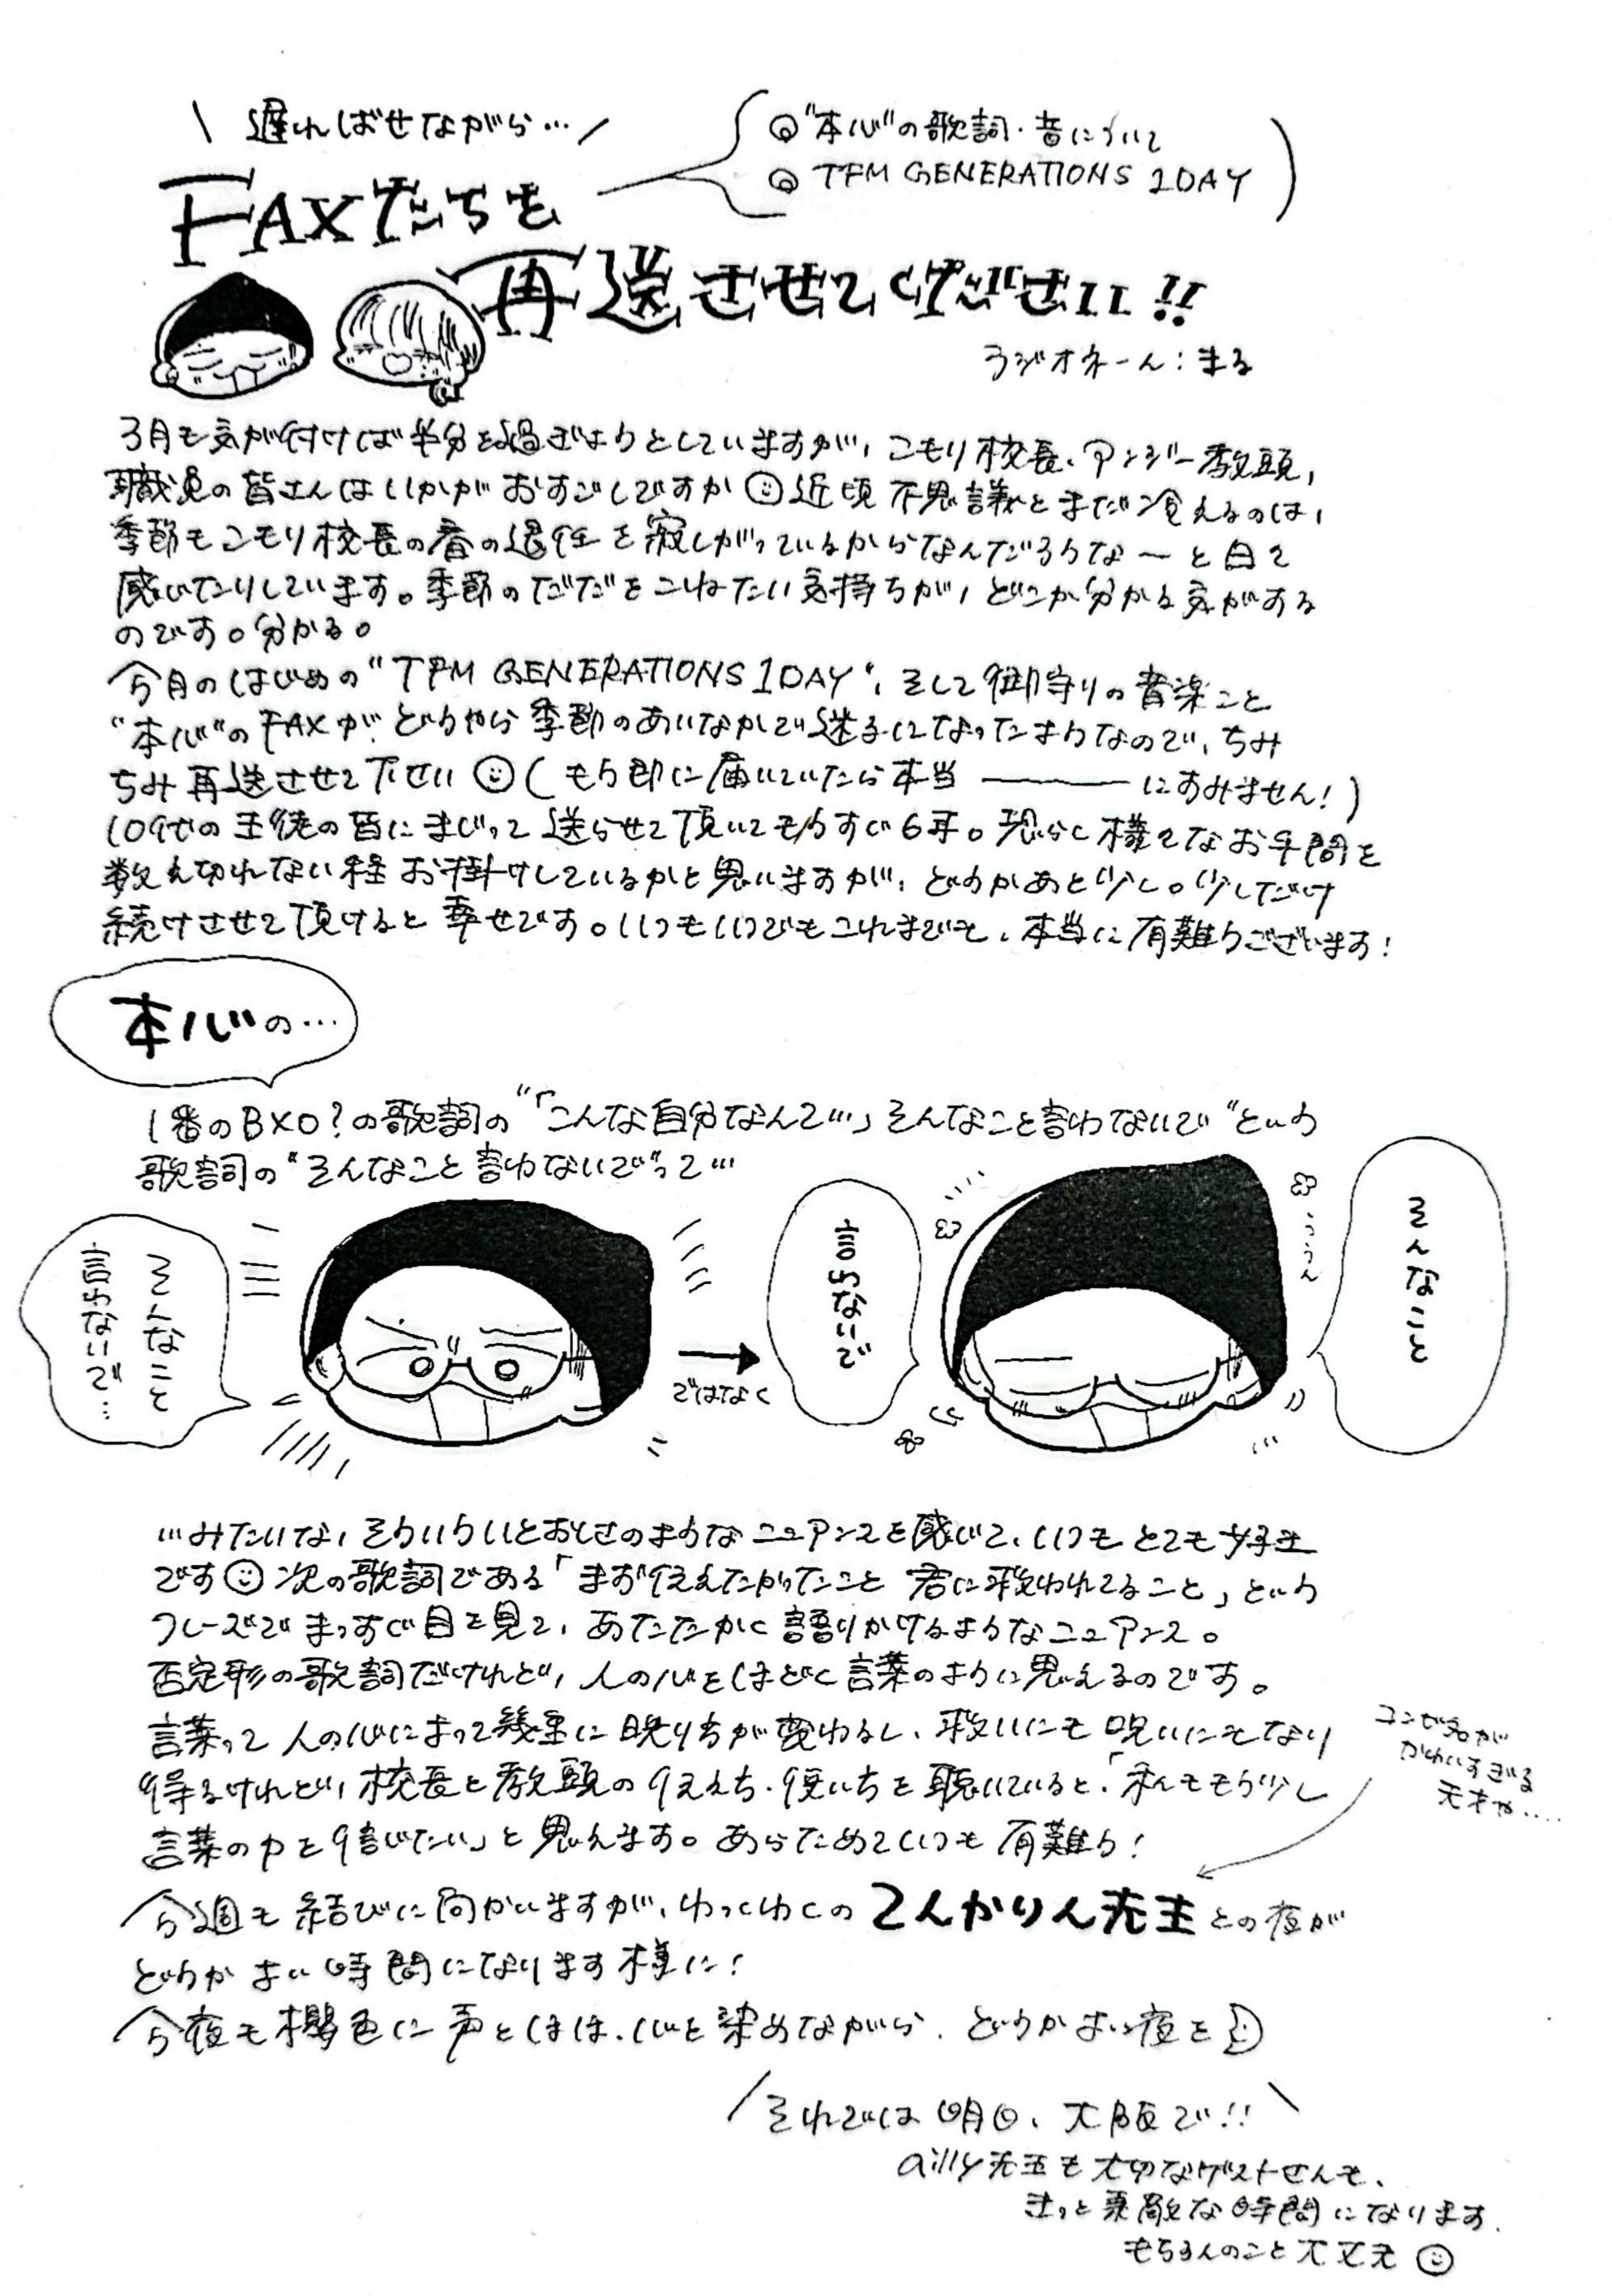 遅ればせながら…
"本心"の歌詞・音について
TFM GENERATIONS 1DAY
FAXたちを
再送させてください!!
ラジオネーム:まる
3月も気が付けば半分を過ぎようとしていますが、こもり校長、アンジー教頭、
職員の皆さんはいかがおすごしですか 近頃 不思議とまだ冷えるのは、
季節もこもり校長の春の退任を寂しがっているからなんだろうな〜と日々
感じたりしています。季節のだだをこねたい気持ちが、どこか分かる気がする
のです。分かる。
今月のはじめの"TFM GENERATIONS 1DAY"、そして御守りの音楽こと
"本心"のFAXが、どうやら季節のあいなかで迷子になったようなので、ちみ
ちみ再送させて下さい(もう既に届いていたら本当――――にすみません!)
10代の生徒の皆にまじって送らせて頂いてもうすぐ6年。恐らく様々なお手間を
数え切れない程お掛けしているかと思いますが、どうかあと少し。少しだけ
続けさせて頂けると幸せです。いつもいつでもこれまでも、本当に有難うございます!
本心の…
1番のBメロ?の歌詞の"「こんな自分なんて…」そんなこと言わないで"という
歌詞の"そんなこと言わないで"って…
そんなこと
言わないで…
ではなく
そんなこと
ううん
言わないで
…みたいな、そういういとおしさのようなニュアンスを感じて、いつもとても好き
です 次の歌詞である「まず伝えたかったこと 君に救われてること」という
フレーズでまっすぐ目を見て、あたたかく語りかけるようなニュアンス。
否定形の歌詞だけれど、人の心をほどく言葉のように思えるのです。
言葉って人の心によって幾重に映り方が変わるし、救いにも呪いにもなり
得るけれど、校長と教頭の伝え方・使い方を聴いていると、「私ももう少し
言葉の力を信じたい」と思えます。あらためていつも有難う!
コンビ名が
かわいすぎる
天才や....
今週も結びに向かいますが、わくわくのてんかりん先生との夜が
どうかよい時間になります様に!
今夜も櫻色に声とほほ、心を染めながら、どうかよい夜を
それでは明日、大阪で!!
ailly先生も大切なゲストさんも、
きっと素敵な時間になります。
もちろんのこと大丈夫